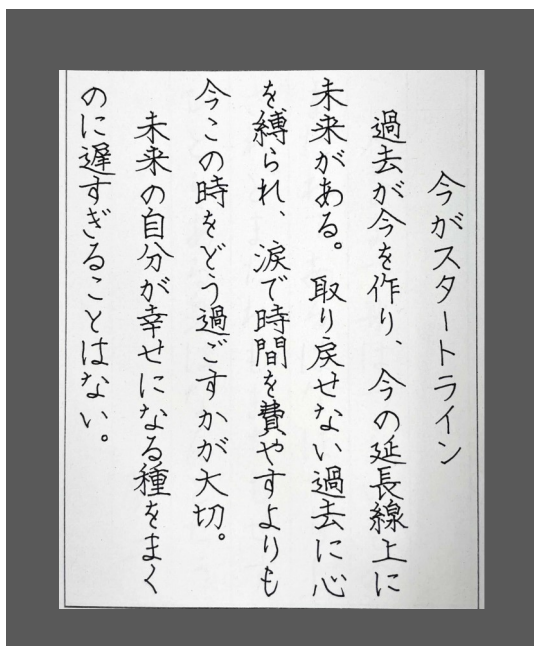 今がスタートライン
過去が今を作り、今の延長線上に
未来がある。取り戻せない過去に心
を縛られ、涙で時間を費やすよりも
今この時をどう過ごすかが大切。
未来の自分が幸せになる種をまく
のに遅すぎることはない。